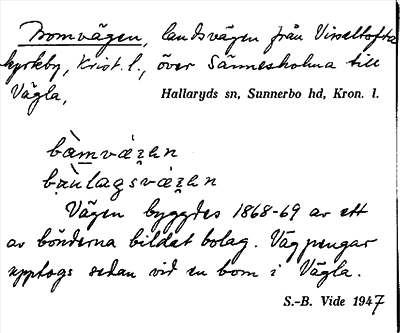 Bomvägen, landsvägen från Visseltofta
kyrkby, Krist. l., över Sännesholma till
Vägla,
Hallaryds sn, Sunnerbo hd, Kron. l.
Vägen byggdes 1868-69 av ett
av bönderna bildat bolag. Vägpengar
upptogs sedan vid en bom i Vägla.
S.-B. Vide 1947